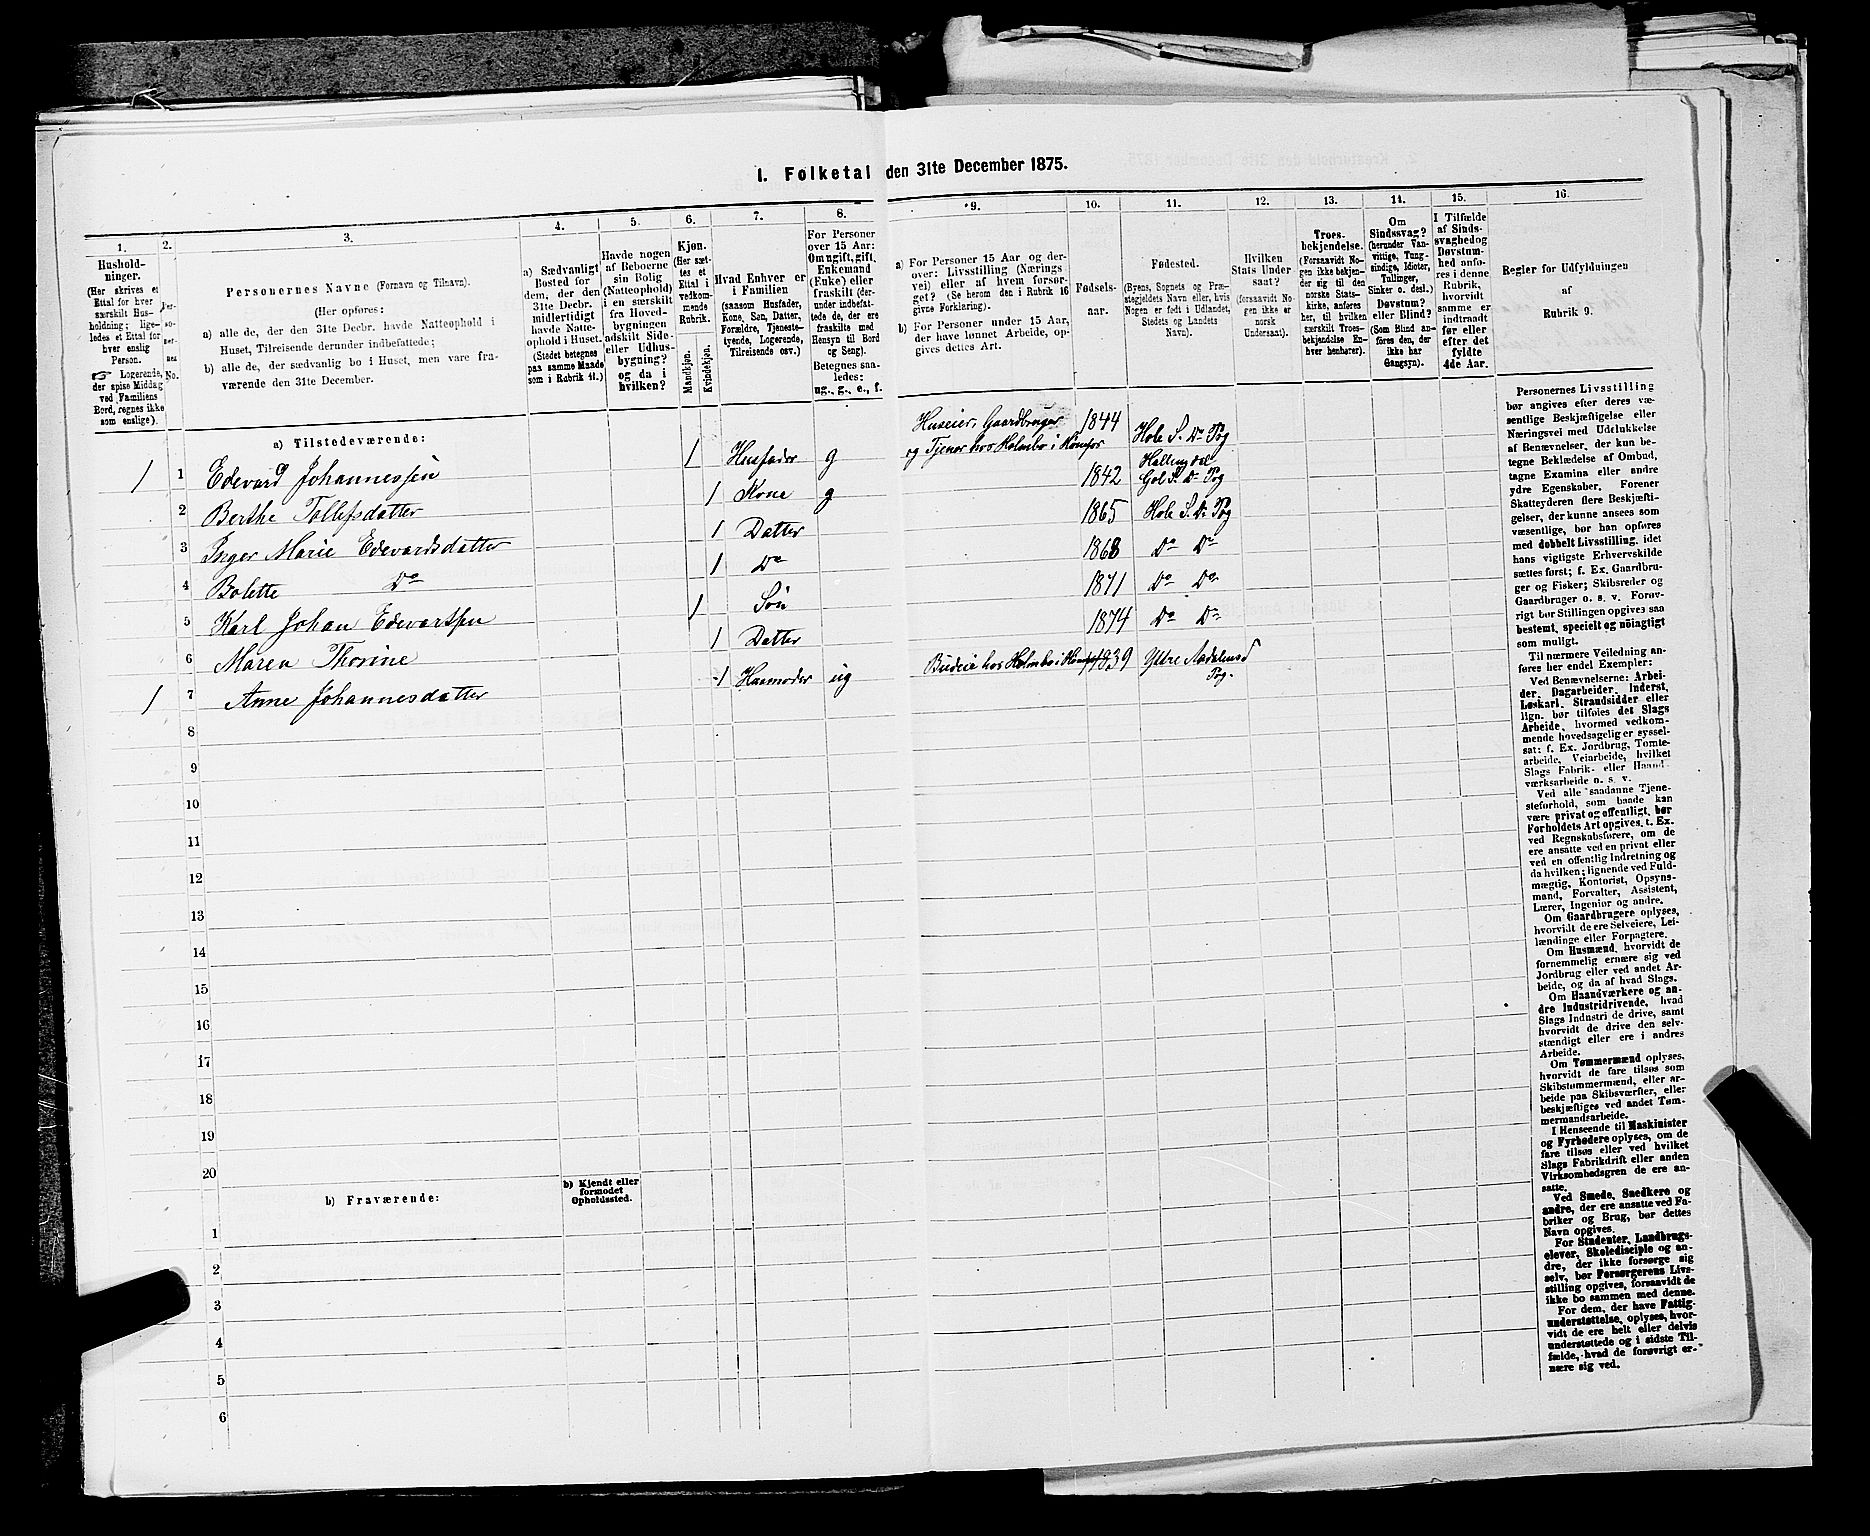 1. Folketal den 31te December 1875.
1.
Hushold-
ninger.
(Her skrives et
Ettal for hver
særskilt Hus-
holdning; lige-
ledes et Ettal for
hver enslig
Person.
☞ Logerende,
der spise Middag
ved Familiens
Bord, regnes ikke
som enslige).
2.
Per-
so-
ner-
nes
No.
3.
Personernes Navne (Fornavn og Tilnavn).
(Her opføres:
a) alle de, der den 31te Decbr. havde Natteophold i
Huset, Tilreisende derunder indbefattede;
b) alle de, der sædvanlig bo i Huset, men vare fra-
værende den 31te December.
4.
a) Sædvanligt
Bosted for
dem, der den
31te Decbr.
midlertidigt
havde Natte-
ophold i Huset.
(Stedet betegnes
paa samme Maade
som i Rubrik 11.)
5.
Havde nogen
af Beboerne
sin Bolig
(Natteophold)
i en særskilt
fra Hoved-
bygningen
adskilt Side-
eller Udhus-
bygning?
og da i
hvilken?
6.
Kjøn.
(Her sæt-
tes et
Ettal i
vedkom-
mende
Rubrik.
Mandkjøn.
Kvindekjøn.
7.
Hvad Enhver er
i Familien
(saasom Husfader,
Kone, Søn, Datter,
Forældre, Tjeneste-
tyende, Logerende,
Tilreisende osv.)
8.
For Personer
over 15 Aar:
Om ugift, gift,
Enkemand
(Enke) eller
fraskilt (der-
under indbefat-
tede de, der ere
fraskilte med
Hensyn til Bord
og Seng).
Betegnes saa-
ledes:
ug., g., e., f.
9.
a) For Personer 15 Aar og der-
over: Livsstilling (Nærings
vei) eller af hvem forsør-
get? (Se herom den i Rubrik 16
givne Forklaring).
b) For Personer under 15 Aar,
der have lønnet Arbeide, op-
gives dettes Art.
10.
Fødsels-
aar.
11.
Fødested.
(Byens, Sognets og Præ-
stegjeldets Navn eller, hvis
Nogen er født i Udlandet,
Stedets og Landets
Navn).
12.
Hvilken
Stats Under
saat?
(forsaavidt No-
gen ikke er
norsk
Undersaat).
13.
Troes-
bekjendelse.
(Forsaavidt No-
gen ikke bekjen-
der sig til den
norske Stats-
kirke, anføres
her, til hvilken
særskilt Troes-
bekjendelse En-
hver henhører).
14.
Om
Sindssvag?
(herunder Van-
vittige, Tung-
sindige, Idioter,
Tullinger,
Sinker o. desl.)
Døvstum?
eller Blind?
(Som Blind an-
føres den, der
ikke har
Gangsyn).
15.
I Tilfælde
af Sinds-
svaghed og
Døvstum-
hed anfø-
res i denne
Rubrik,
hvorvidt
samme er
indtraadt
før eller
efter det
fyldte
4de Aar.
16.
Regler for Udfyldningen
af
Rubrik 9.
a) Tilstedeværende:
1 1 Edevard Johannessen 1 Husfader g Huseier, Gaardbruger
og Tjener hos Holmbo i Komfor 1844 Hole S. Do Pog
2 Berthe Tollefsdatter 1 Kone g 1842 Hallingdal
Gol S. Do Pog
3 Inger Marie Edevardsdatter 1 Datter 1865 Hole S. Do Pog
4 Bolette Do 1 Do 1868 Do Do
5 Karl Johan Edevartsen 1 Søn 1871 Do Do
6 Maren Thorine 1 Datter 1874 Do Do
1 7 Anne Johannesdatter 1 Husmoder ug Budeie hos Holmbo i 1839 Yttre Aadalens
Pog.
8
9
10
11
12
13
14
15
16
17
18
19
20
b) Fraværende:
b) Kjendt eller
formodet
Opholdssted.
1
2
3
4
5
6
Personernes Livsstilling
bør angives efter deres væ-
sentlige Beskjæftigelse eller
Næringsvei med Udelukkelse
af Benævnelser, der kun be-
tegne Beklædelse af Ombud,
tagne Examina eller andre
ydre Egenskaber. Forener
Skatteyderen flere Beskjæfti-
gelser, der kunne ansees som
væsentlige, bør han opføres
med dobbelt Livsstilling, idet
hans vigtigste Erhvervskilde
sættes først; f. Ex. Gaardbru-
ger og Fisker; Skibsreder og
Gaardbruger o. s. v. Forøv-
rigt bør Stillingen opgives saa
bestemt, specielt og nöiagtigt
som muligt.
Til nærmere Veiledning an-
føres her endel Exempler:
Ved Benævnelserne: Arbei-
der, Dagarbeider, Inderst,
Løskarl, Strandsidder eller
lign. bør tilføies det Slags
Arbeide, hvormed vedkom-
mende hovedsagelig er syssel-
sat: f. Ex. Jordbrug, Tomte-
arbeide, Veiarbeide, hvilket
Slags Fabrik- eller Haand-
værksarbeide o. s. v.
Ved alle saadanne Tjene-
steforhold, som baade kan
være privat og offentligt, bør
Forholdets Art opgives, t. Ex.
ved Regnskabsførere, om de
ere ansatte ved en privat eller
ved en offentlig Indretning og
da hvilken; lignende ved Fuld-
mægtig, Kontorist, Opsyns-
mand, Forvalter, Assistent,
Lærer, Ingeniør og andre.
Om Gaardbrugere oplyses,
hvorvidt de ere Selveiere, Lei-
lændinge eller Forpagtere.
Om Husmænd, hvorvidt de
fornemmelig ernære sig ved
Jordbrug eller ved andet Ar-
beide, og da af hvad Slags.
Om Haandværkere og an-
dre Industridrivende, hvad
Slags Industri de drive, samt
hvorvidt de drive den selv-
stændigt eller ere i andres
Arbeide.
Om Tømmermænd oplyses,
hvorvidt de fare tilsøs som
Skibstømmermænd, eller ar-
beide paa Skibsværfter, eller
beskjæftiges ved andet Tøm-
mermandsarbeide.
I Henseende til Maskinister
og Fyrbødere oplyses, om de
fare tilsøs eller ved hvilket
Slags Fabrikdrift eller anden
Virksomhedsgren de ere an-
satte.
Ved Smede, Snedkere og
andre, der ere ansatte ved Fa-
briker og Brug, bør dettes
Navn opgives.
For Studenter, Landbrugs-
elever, Skoledisciple og an-
dre, der ikke forsørge sig
selv, bør Forsørgerens Livs-
stilling opgives, forsaavidt de
ikke bo sammen med denne.
For dem, der have Fattig-
understøttelse, oplyses, hvor-
vidt de ere helt eller delvis
understøttede og i sidste Til-
fælde, hvad de forøvrigt er-
nære sig ved.